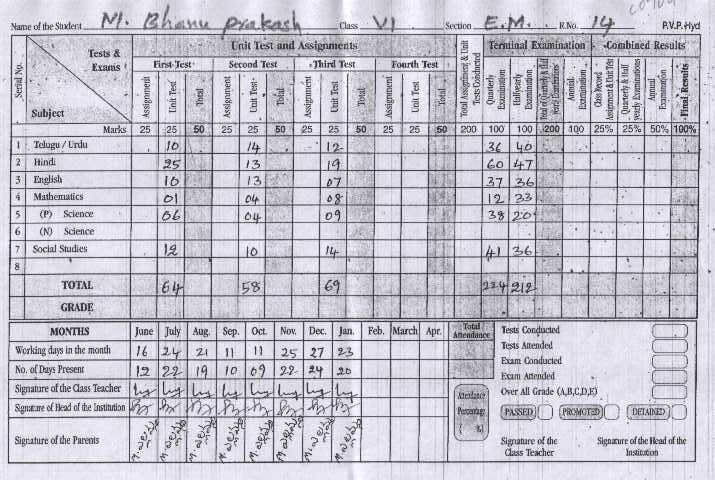 Name of the Student M. Bhanu Prakash Class VI Section E.M. R.No. 14 P.V.P.-Hyd
Serial No. Tests & Exams Subject Unit Test and Assignments Terminal Examination Combined Results
First Test Second Test Third Test Fourth Test
Assignment Unit Test Total Assignment Unit Test Total Assignment Unit Test Total Assignment Unit Test Total Total Assignment & Unit Tests Conducted Quarterly Examination Halfyearly Examination Annual Examination Class Record Assignment & Unit Test Quarterly & Half yearly Examinations Annual Examination Final Results
Marks 25 25 50 25 25 50 25 25 50 25 25 50 200 100 100 200 100 25% 25% 50% 100%
1 Telugu / Urdu 10 14 12 36 40
2 Hindi 25 13 19 60 47
3 English 10 13 07 37 36
4 Mathematics 01 04 08 12 33
5 (P) Science 06 04 09 38 20
6 (N) Science
7 Social Studies 12 10 14 41 36
8
TOTAL 64 58 69 224 212
GRADE
MONTHS June July Aug. Sep. Oct. Nov. Dec. Jan. Feb. March Apr. Total Attendance
Working days in the month 16 24 21 11 11 25 27 23
No. of Days Present 12 22 19 10 09 22 24 20
Signature of the Class Teacher
Signature of Head of the Institution
Signature of the Parents
Attendance Percentage ( %)
Tests Conducted
Tests Attended
Exam Conducted
Exam Attended
Over All Grade (A,B,C,D,E)
PASSED PROMOTED DETAINED
Signature of the Class Teacher
Signature of the Head of the Institution